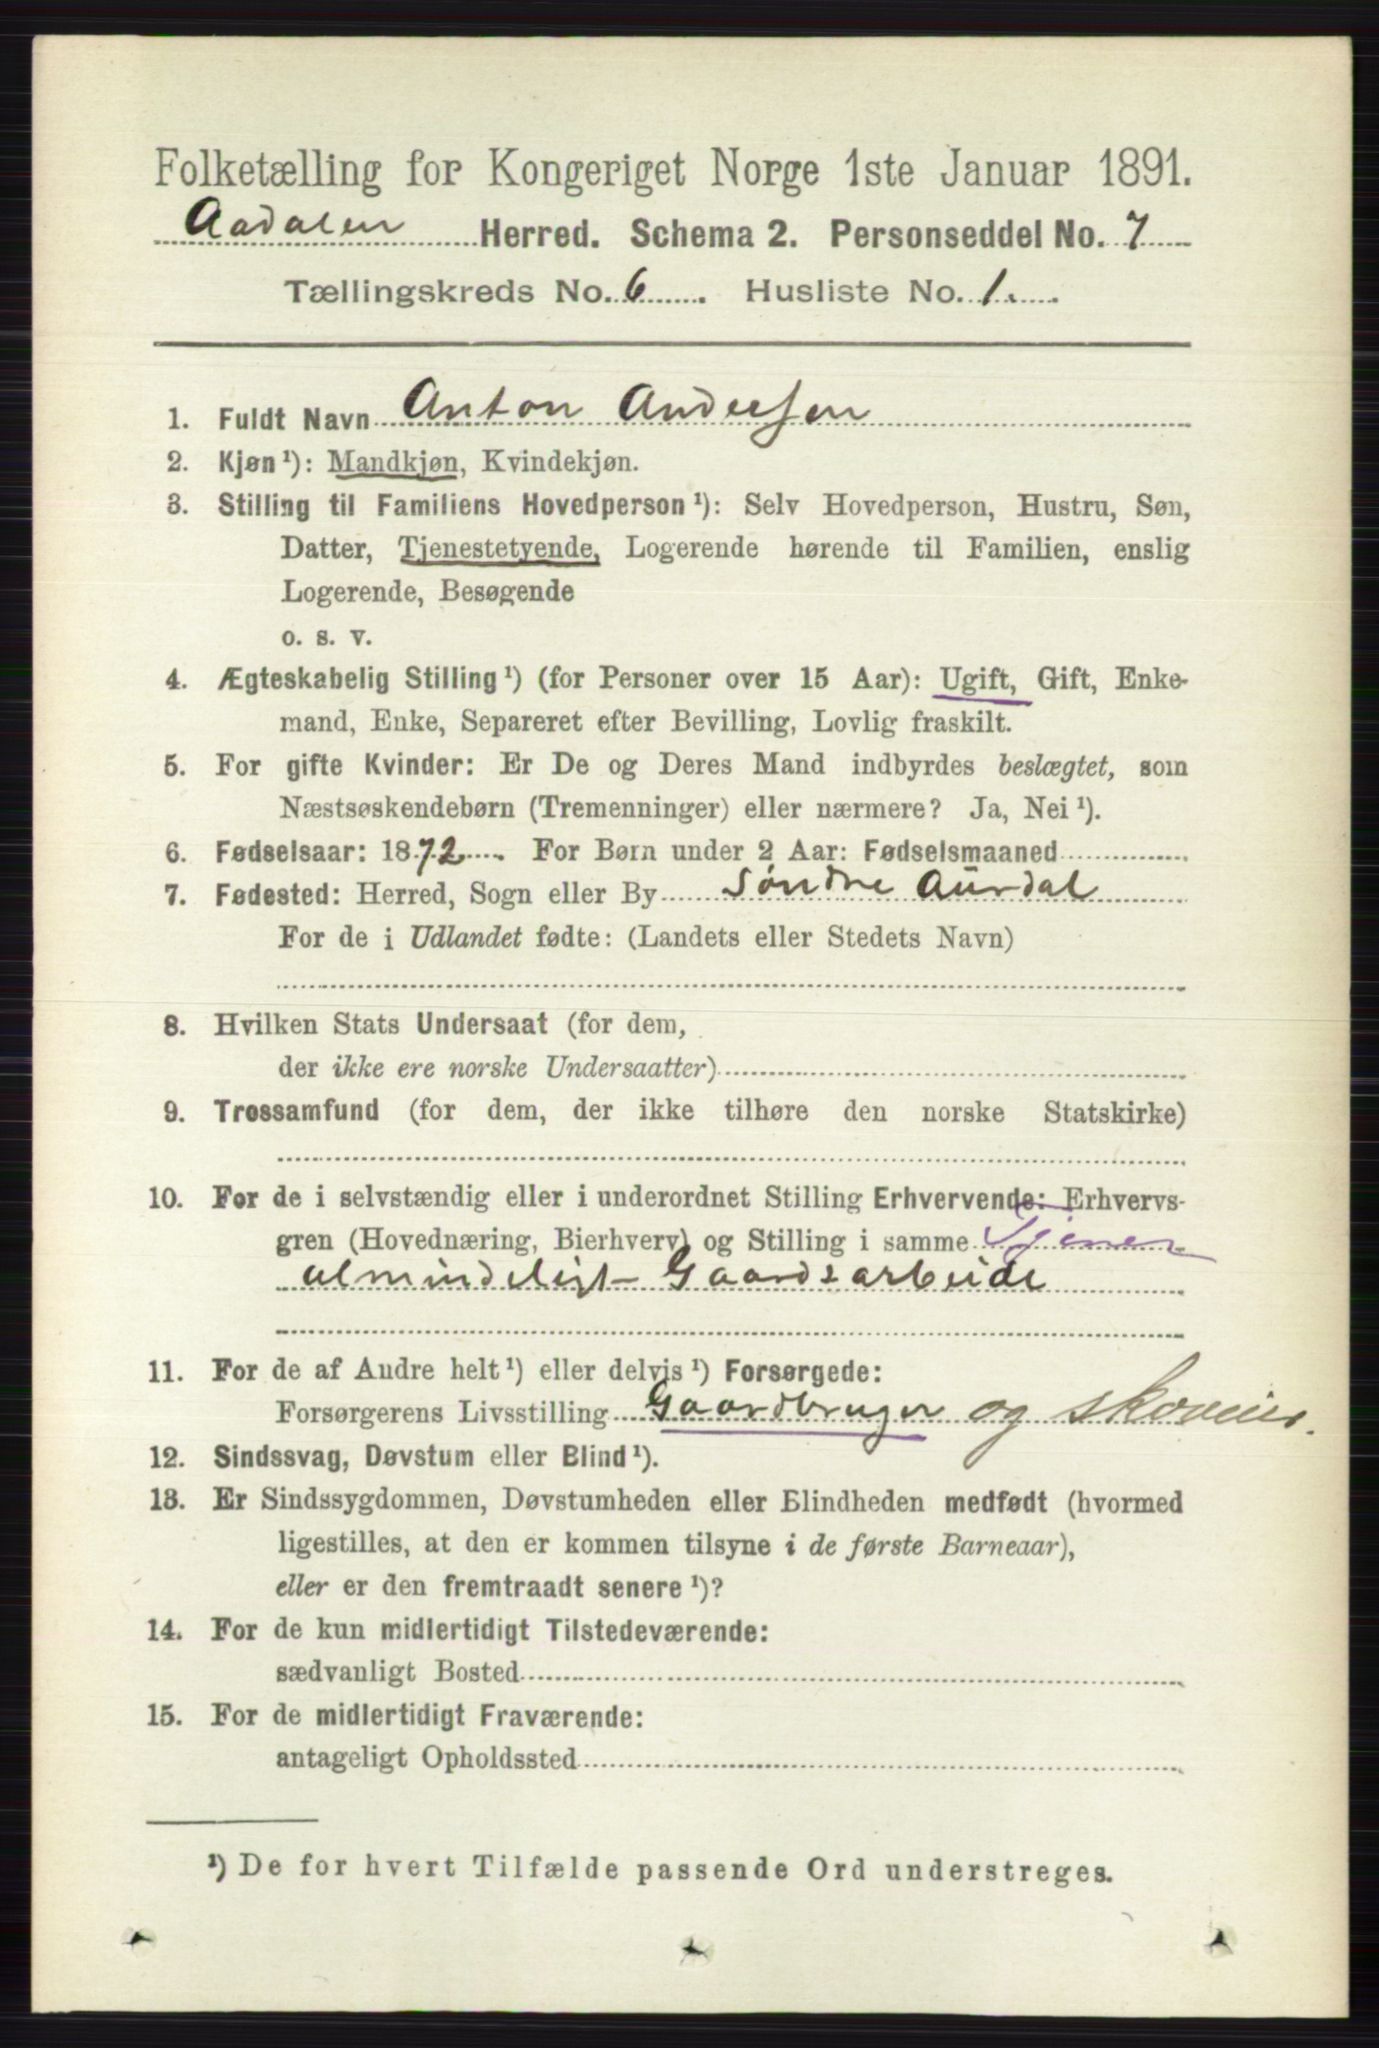 Folketælling for Kongeriget Norge 1ste Januar 1891.
Aadalen Herred. Schema 2. Personseddel No. 7
Tællingskreds No. 6. Husliste No. 1.
1. Fuldt Navn Anton Andersen
2. Kjøn ¹): Mandkjøn, Kvindekjøn.
3. Stilling til Familiens Hovedperson ¹): Selv Hovedperson, Hustru, Søn,
Datter, Tjenestetyende, Logerende hørende til Familien, enslig
Logerende, Besøgende
o. s. v.
4. Ægteskabelig Stilling ¹) (for Personer over 15 Aar): Ugift, Gift, Enke-
mand, Enke, Separeret efter Bevilling, Lovlig fraskilt.
5. For gifte Kvinder: Er De og Deres Mand indbyrdes beslægtet, som
Næstsøskendebørn (Tremenninger) eller nærmere? Ja, Nei ¹).
6. Fødselsaar: 1872. For Børn under 2 Aar: Fødselsmaaned
7. Fødested: Herred, Sogn eller By Søndre Aurdal
For de i Udlandet fødte: (Landets eller Stedets Navn)
8. Hvilken Stats Undersaat (for dem,
der ikke ere norske Undersaatter)
9. Trossamfund (for dem, der ikke tilhøre den norske Statskirke)
10. For de i selvstændig eller i underordnet Stilling Erhvervende: Erhvervs-
gren (Hovednæring, Bierhverv) og Stilling i samme Tjener
almindeligt Gaardsarbeide
11. For de af Andre helt ¹) eller delvis ¹) Forsørgede:
Forsørgerens Livsstilling Gaardbruger og skoveier.
12. Sindssvag, Døvstum eller Blind ¹).
13. Er Sindssygdommen, Døvstumheden eller Blindheden medfødt (hvormed
ligestilles, at den er kommen tilsyne i de første Barneaar),
eller er den fremtraadt senere ¹)?
14. For de kun midlertidigt Tilstedeværende:
sædvanligt Bosted
15. For de midlertidigt Fraværende:
antageligt Opholdssted
¹) De for hvert Tilfælde passende Ord understreges.